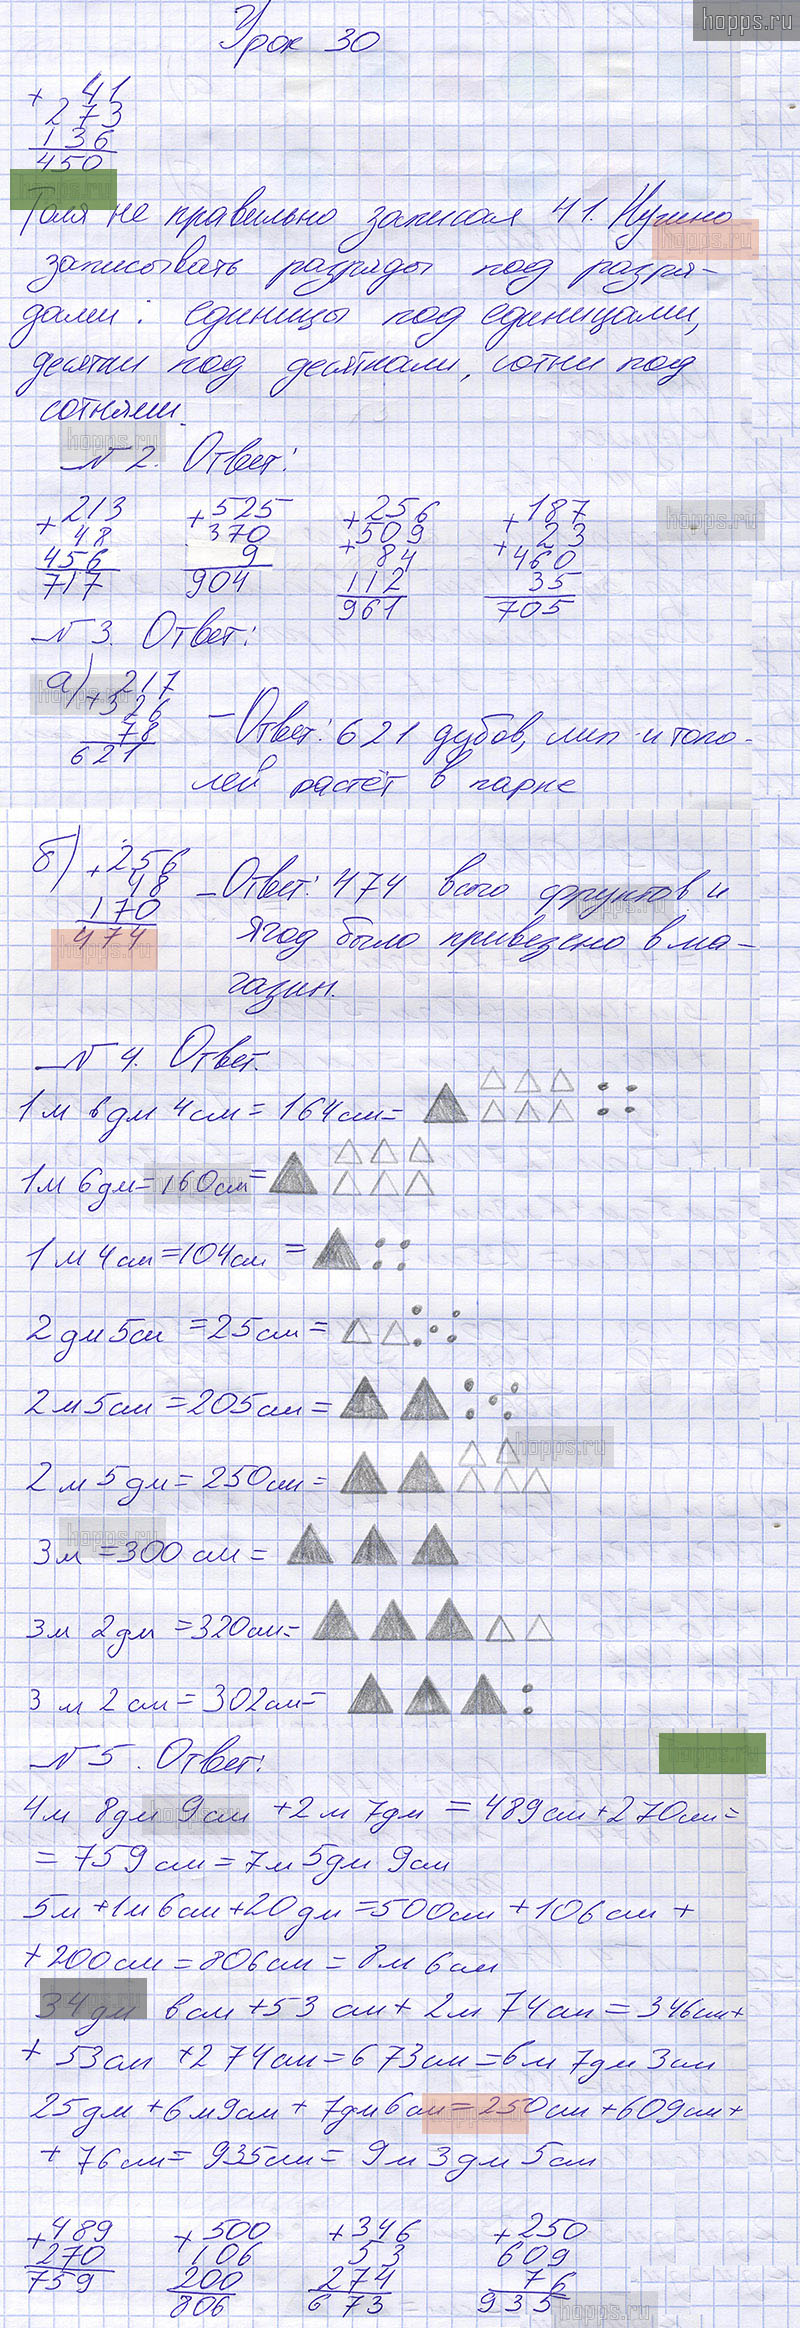 hopps.ru
Урок 30
+ 41
273
136
450
Толя не правильно записал 41. Нужно
записывать разряды под разря-
дами: единицы под единицами,
десятки под десятками, сотни под
сотнями.
№2. Ответ:
+213 +525 +256 +187
48 370 +509 +23
456 9 84 460
717 904 112 35
961 705
№3. Ответ:
а) 217
+326
78
621
– Ответ: 621 дубов, лип и топо-
лей растёт в парке
б) +256
48
170
474
– Ответ: 474 всего фруктов и
ягод было привезено в ма-
газин.
№4. Ответ.
1м 6дм 4см = 164см=
1м 6дм=160см=
1м 4см=104см =
2дм 5см =25см=
2м 5см =205см=
2м 5дм= 250см=
3м =300см=
3м 2дм =320см=
3м 2см = 302см=
№5. Ответ:
4м 8дм 9см +2м 7дм = 489см+270см=
= 759см=7м 5дм 9см
5м+1м 6см+20дм=500см+106см+
+200см=806см= 8м 6см
34дм 6см +53см+ 2м 74см = 346см+
+ 53см +274см=673см=6м 7дм 3см
25дм+6м 9см+ 7дм 6см=250см+609см+
+ 76см= 935см= 9м 3дм 5см
+489 +500 +346 +250
270 106 53 609
759 200 274 76
806 673 935
hopps.ru